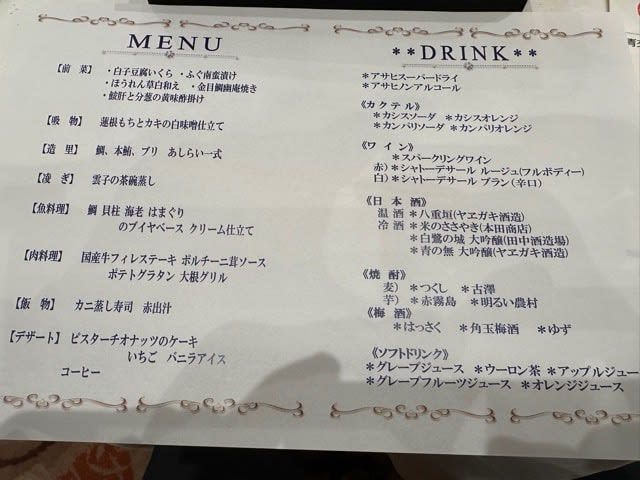 MENU
【前 菜】 ・白子豆腐いくら ・ふぐ南蛮漬け
・ほうれん草白和え ・金目鯛幽庵焼き
・鮟肝と分葱の黄味酢掛け
【吸 物】 蓮根もちとカキの白味噌仕立て
【造 里】 鯛、本鮪、ブリ あしらい一式
【凌 ぎ】 雲子の茶碗蒸し
【魚料理】 鯛 貝柱 海老 はまぐり
のブイヤベース クリーム仕立て
【肉料理】 国産牛フィレステーキ ポルチーニ茸ソース
ポテトグラタン 大根グリル
【飯 物】 カニ蒸し寿司 赤出汁
【デザート】 ピスターチオナッツのケーキ
いちご バニラアイス
コーヒー
**DRINK**
*アサヒスーパードライ
*アサヒノンアルコール
《カクテル》
*カシスソーダ *カシスオレンジ
*カンパリソーダ *カンパリオレンジ
《ワイン》
*スパークリングワイン
赤)*シャトーデサール ルージュ(フルボディー)
白)*シャトーデサール ブラン(辛口)
《日 本 酒》
温 酒 *八重垣(ヤヱガキ酒造)
冷 酒 *米のささやき(本田商店)
*白鷺の城 大吟醸(田中酒造場)
*青の無 大吟醸(ヤヱガキ酒造)
《焼 酎》
麦) *つくし *古澤
芋) *赤霧島 *明るい農村
《梅 酒》
*はっさく *角玉梅酒 *ゆず
《ソフトドリンク》
*グレープジュース *ウーロン茶 *アップルジュー
*グレープフルーツジュース *オレンジジュース